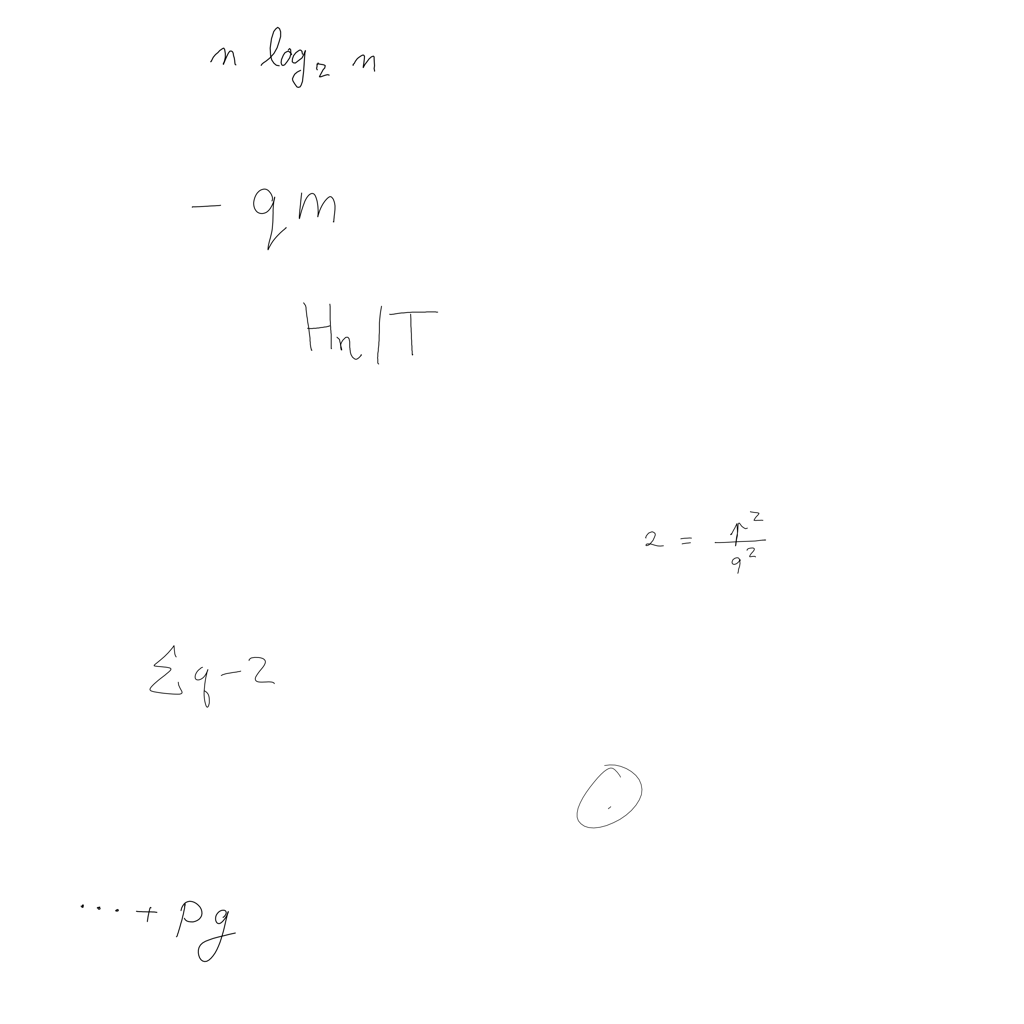 n log₂ n
- qm
Hn/T
2 = p²/q²
∑q-2
⊙
...+pg